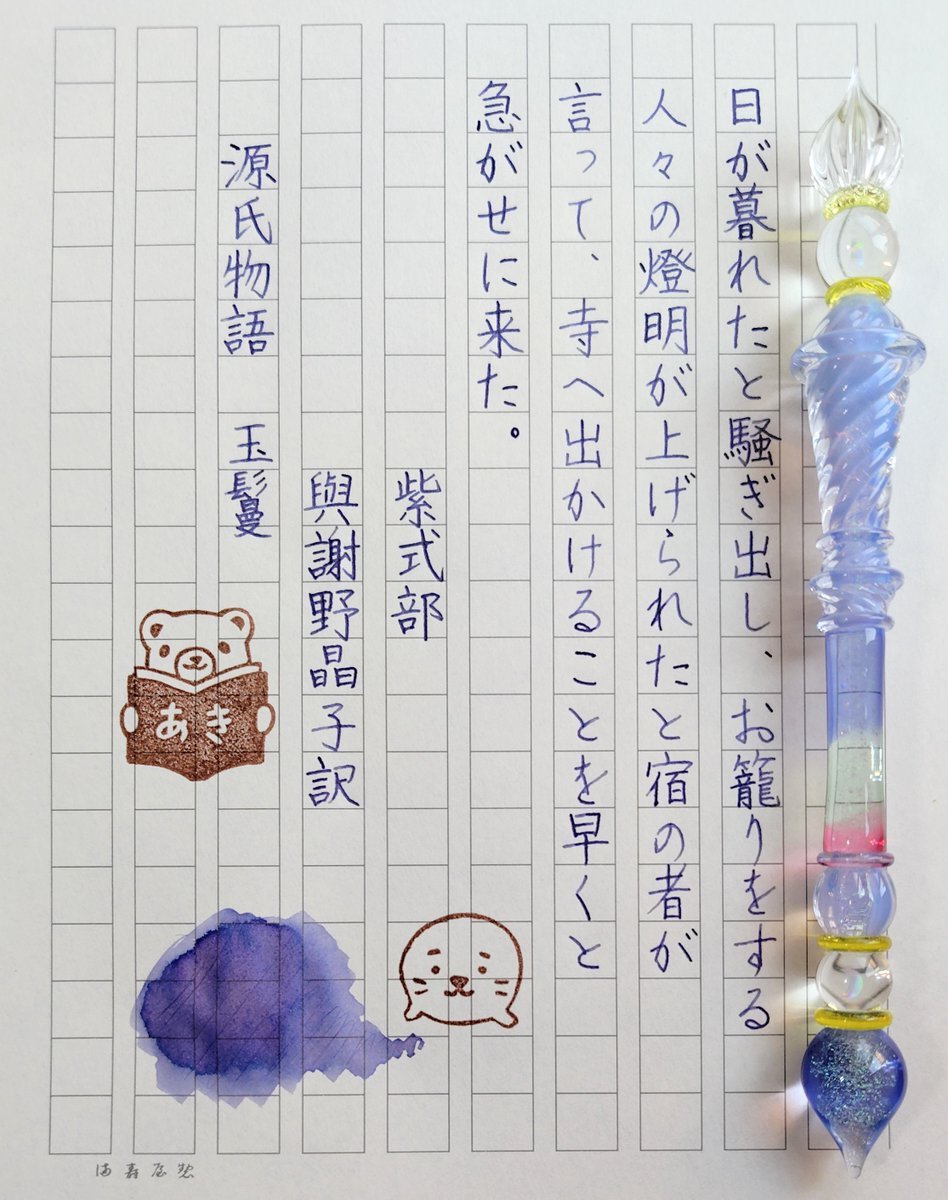 日が暮れたと騒ぎ出し、お籠りをする
人々の燈明が上げられたと宿の者が
言って、寺へ出かけることを早くと
急がせに来た。
紫式部
與謝野晶子訳
源氏物語 玉鬘
あき
満寿屋製